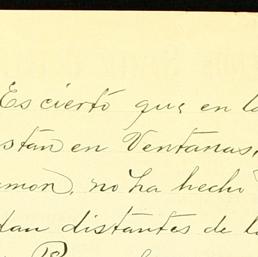 Es cierto que en la
stán en Ventanas,
amon, no ha hecho
dan distantes de l